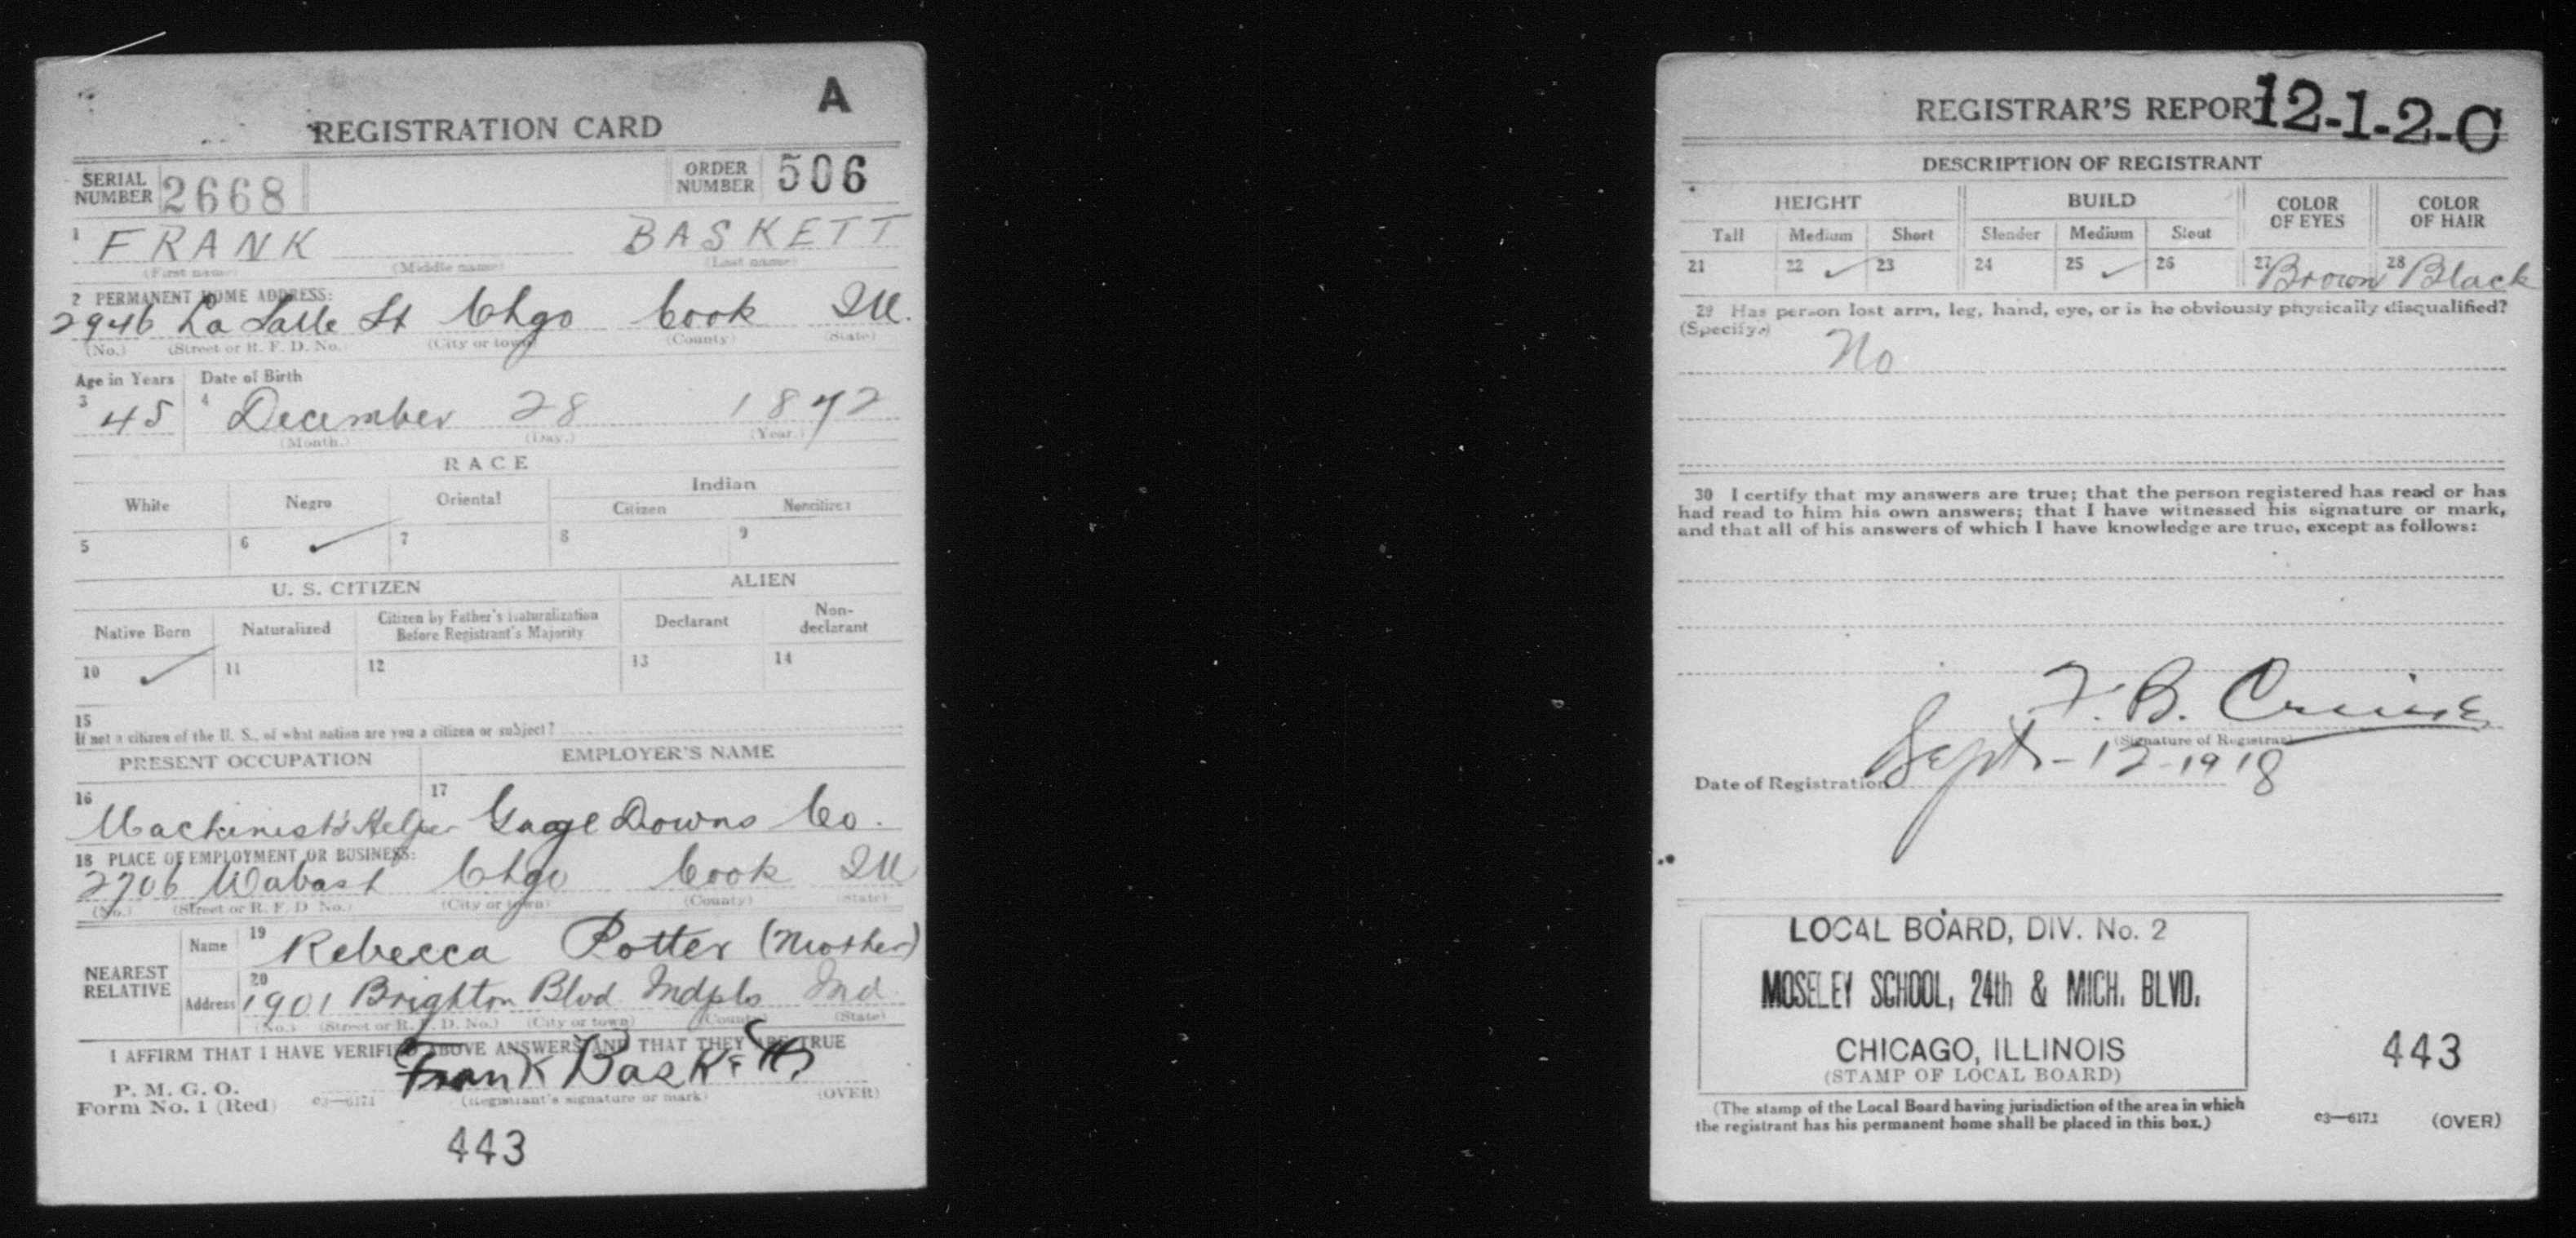 A
REGISTRATION CARD
SERIAL NUMBER 2668 ORDER NUMBER 506
1 FRANK BASKETT
(First name) (Middle name) (Last name)
2 PERMANENT HOME ADDRESS:
2946 La Salle St Chgo Cook Ill.
(No.) (Street or R. F. D. No.) (City or town) (County) (State)
Age in Years Date of Birth
3 45 4 December 28 1872
(Month.) (Day.) (Year.)
RACE
White Negro Oriental Indian
Citizen Noncitizen
5 6 ✓ 7 8 9
U. S. CITIZEN ALIEN
Native Born Naturalized Citizen by Father's Naturalization Before Registrant's Majority Declarant Non-declarant
10 ✓ 11 12 13 14
15
If not a citizen of the U. S., of what nation are you a citizen or subject?
PRESENT OCCUPATION EMPLOYER'S NAME
16 Machinist's Helper 17 Gage Downs Co.
18 PLACE OF EMPLOYMENT OR BUSINESS:
2706 Wabash Chgo Cook Ill
(No.) (Street or R. F. D. No.) (City or town) (County) (State)
NEAREST RELATIVE Name 19 Rebecca Potter (Mother)
Address 20 1901 Brighton Blvd Indpls Ind.
(No.) (Street or R. F. D. No.) (City or town) (County) (State)
I AFFIRM THAT I HAVE VERIFIED ABOVE ANSWERS AND THAT THEY ARE TRUE
P. M. G. O.
Form No. 1 (Red) c3—6171 Frank Baskett (OVER)
(Registrant's signature or mark)
443
REGISTRAR'S REPORT 12-1-2-C
DESCRIPTION OF REGISTRANT
HEIGHT BUILD COLOR OF EYES COLOR OF HAIR
Tall Medium Short Slender Medium Stout
21 22 ✓ 23 24 25 ✓ 26 27 Brown 28 Black
29 Has person lost arm, leg, hand, eye, or is he obviously physically disqualified?
(Specify.) No
30 I certify that my answers are true; that the person registered has read or has
had read to him his own answers; that I have witnessed his signature or mark,
and that all of his answers of which I have knowledge are true, except as follows:
F. B. Cruise
(Signature of Registrar)
Date of Registration Sept-12-1918
LOCAL BOARD, DIV. No. 2
MOSELEY SCHOOL, 24th & MICH. BLVD.
CHICAGO, ILLINOIS
(STAMP OF LOCAL BOARD)
443
(The stamp of the Local Board having jurisdiction of the area in which
the registrant has his permanent home shall be placed in this box.)
c3—6171 (OVER)